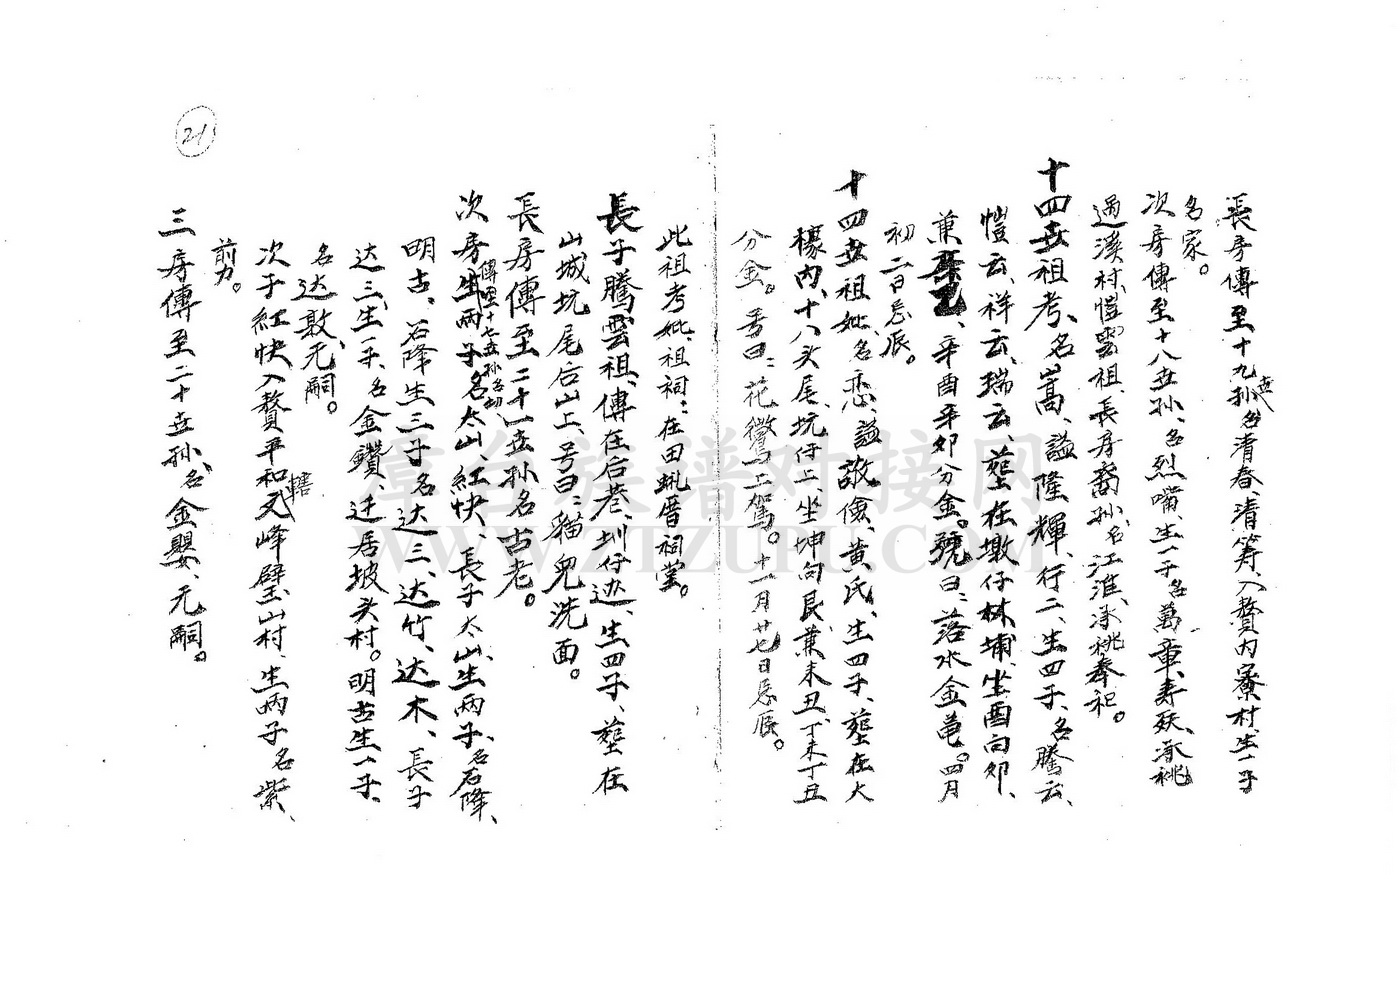 長房傳至十九世孫名清春清籌、入贅内寮村、生一子
名家。
次房傳至十八世孫、名烈嘴、生一子名萬章、寿夭、承祧
過溪村、愷雲祖、長房裔孫、名江淮、承祧奉祀。
十四世祖考、名嵩、謚隆輝、行二、生四子、名騰云、
愷云、祥云、瑞云、塟在墩仔林埔、坐酉向卯、
兼乙、辛酉辛卯分金。號曰：落水金亀。四月
初二日忌辰。
十四世祖妣、名恋、謚敬儉、黄氏、生四子、塟在大
檺内、十八头尾、坑仔上、坐坤向艮、兼未丑、丁未丁丑
分金。号曰：花鶯上駕。十一月廿七日忌辰。
此祖考妣、祖祠：在田厝祠堂。
長子騰雲祖、傳在后巷、圳仔边、生四子、塟在
山城坑尾后山上、号曰：貓兒洗面。
長房傳至二十一世孫名古老。
次房傳至十七世孫名切生兩子名太山、紅快、長子太山、生兩子、名石降、
明古、石降生三子名达三、达竹、达木、長子
达三、生一子、名金鑽、迁居坡头村。明古生一子、
名达敦、无嗣。
次子紅快入贅平和轄峰壁山村、生两子名紫、
前力。
三房傳至二十世孫、名金嬰、无嗣。
21
章台族谱对接网
WWW.ZTZUPU.COM